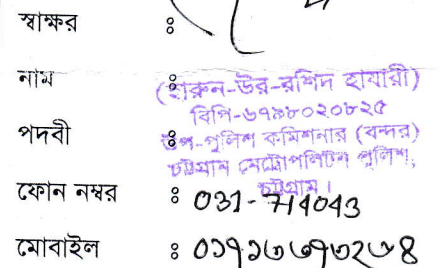 স্বাক্ষর :
নাম : (হারুন-উর-রশিদ হাযারী)
বিপি-৬৭৯৮০২০৮২৫
পদবী : উপ-পুলিশ কমিশনার (বন্দর)
চট্টগ্রাম মেট্রোপলিটন পুলিশ,
চট্টগ্রাম।
ফোন নম্বর : 031-714043
মোবাইল : ০১৭১৬৬৭৩২৬৪